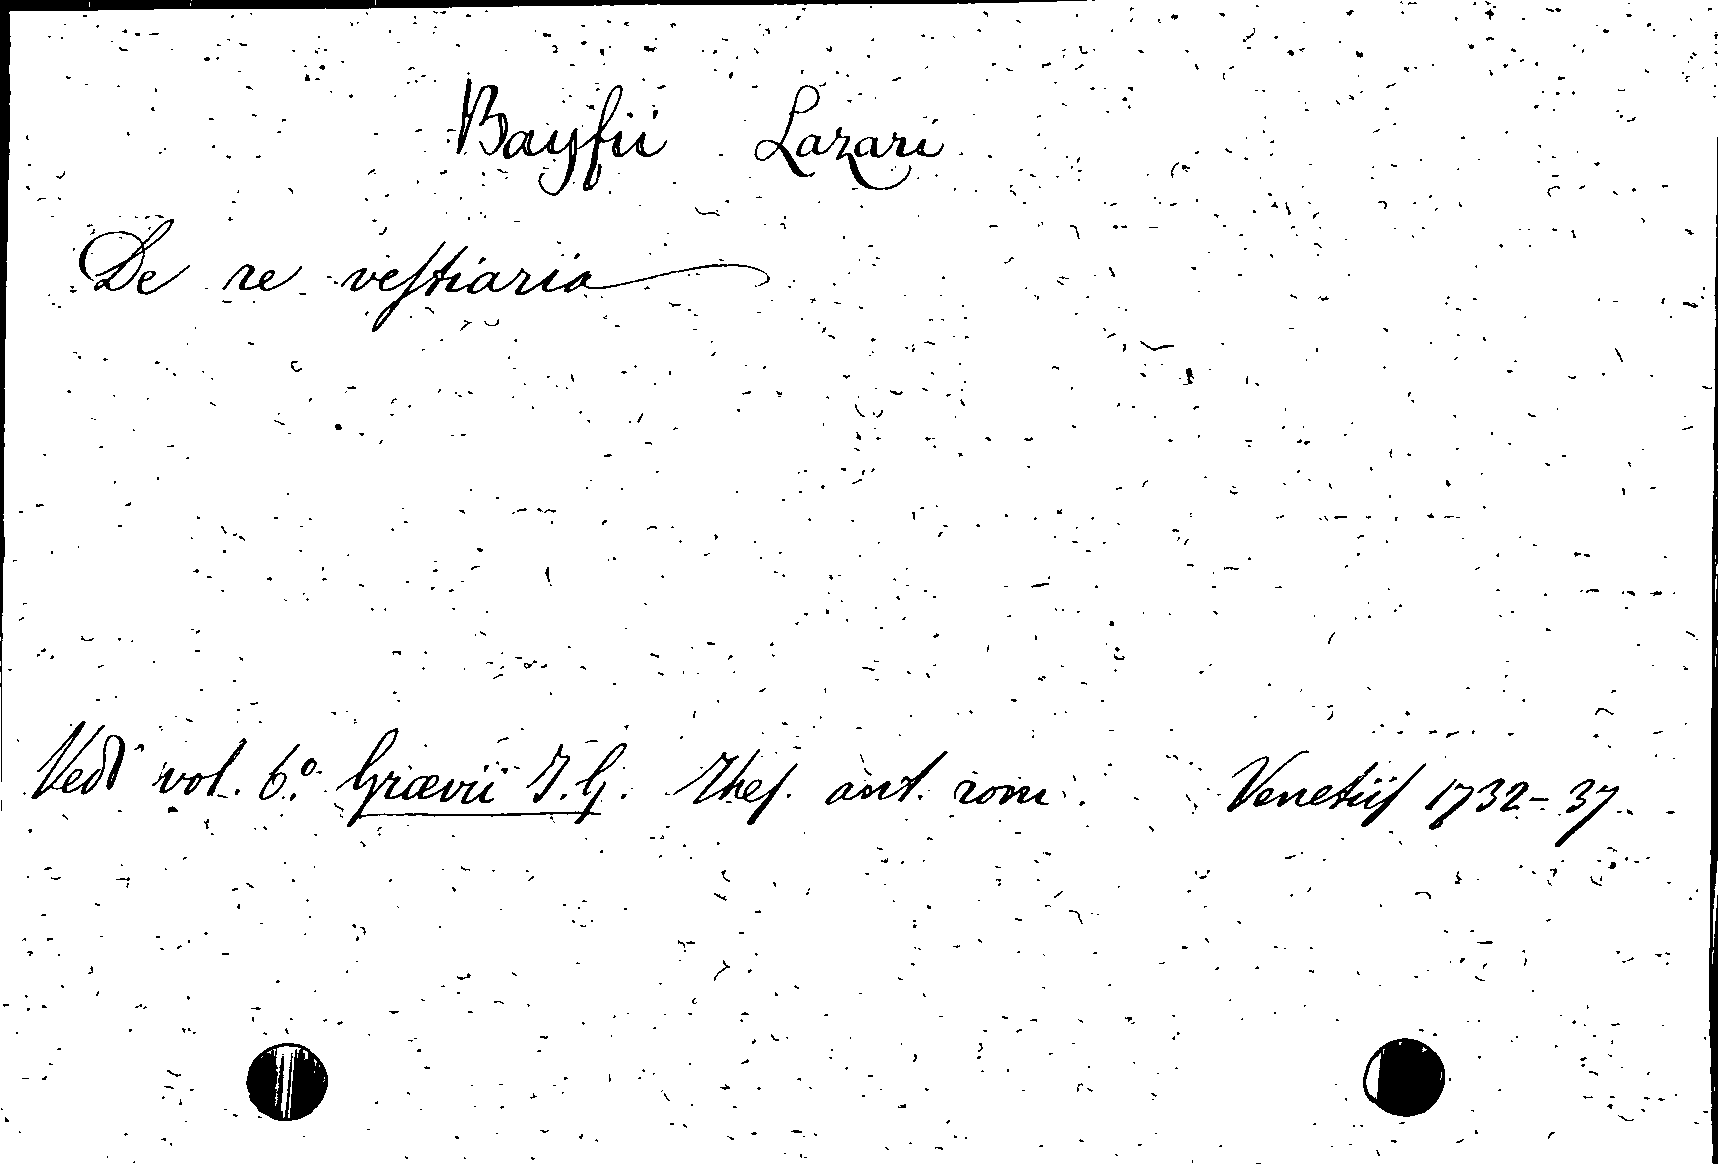 Bayfii Lazari
De re veſtiaria
Vedi vol. 6.º Grævii J. G. Theſ. ant. rom. Venetiiſ 1732-37